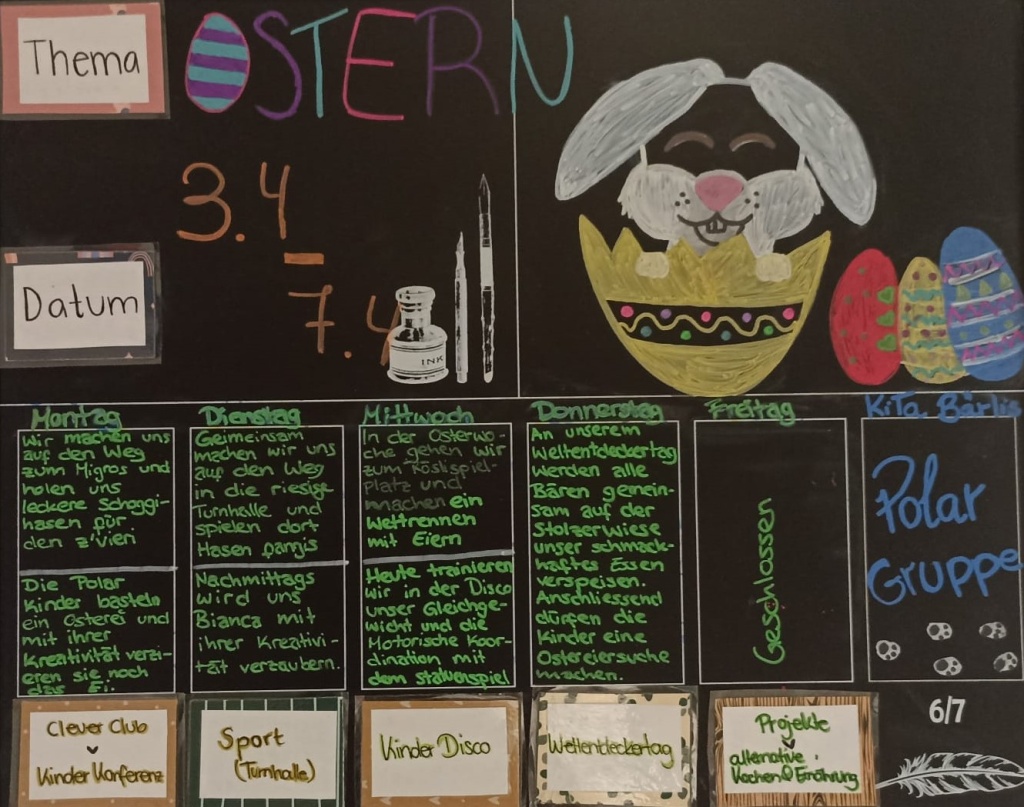 Thema
OSTERN
3.4
–
7.4
Datum
INK
Montag
Wir machen uns
auf den Weg
zum Migros und
holen uns
leckere Schoggi-
hasen für
den z'Vieri
Die Polar
Kinder basteln
ein Osterei und
mit ihrer
Kreativität verzi-
eren sie noch
das Ei.
Dienstag
Geimeinsam
machen wir uns
auf den Weg
in die riesige
Turnhalle und
spielen dort
Hasen fangis
Nachmittags
wird uns
Bianca mit
ihrer Kreativi-
tät verzaubern.
Mittwoch
In der Osterwo-
che gehen wir
zum Röslispiel-
platz und
machen ein
Wettrennen
mit Eiern
Heute trainieren
wir in der Disco
unser Gleichge-
wicht und die
Motorische Koor-
dination mit
dem
Donnerstag
An unserem
Weltentdeckertag
werden alle
Bären gemein-
sam auf der
Stolzerwiese
unser schmack-
haftes Essen
verspeisen.
Anschliessend
dürfen die
Kinder eine
Ostereiersuche
machen.
Freitag
Geschlossen
KiTa Bärlis
Polar
Gruppe
6/7
Clever Club
Kinder Konferenz
Sport
(Turnhalle)
Kinder Disco
Weltentdeckertag
Projekte
alternative
Kochen & Ernährung